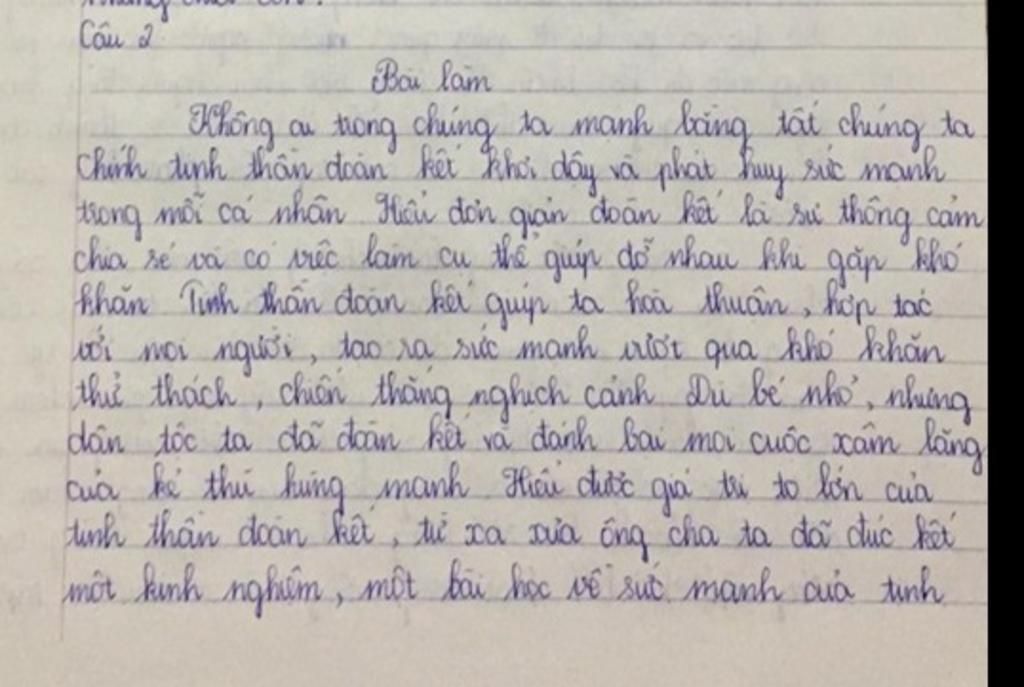 Câu 2
Bài làm
Không ai trong chúng ta mạnh bằng tất chúng ta
Chính tinh thần đoàn kết khơi dậy và phát huy sức mạnh
trong mỗi cá nhân Hiểu đơn giản đoàn kết là sự thông cảm
chia sẻ và có việc làm cụ thể giúp đỡ nhau khi gặp khó
khăn Tinh thần đoàn kết giúp ta hoà thuận, hợp tác
với mọi người, tạo ra sức mạnh vượt qua khó khăn
thử thách, chiến thắng nghịch cảnh Dù bé nhỏ, nhưng
dân tộc ta đã đoàn kết và đánh bại mọi cuộc xâm lăng
của kẻ thù hùng mạnh. Hiểu được giá trị to lớn của
tinh thần đoàn kết, từ xa xưa ông cha ta đã đúc kết
một kinh nghiệm, một bài học về sức mạnh của tinh